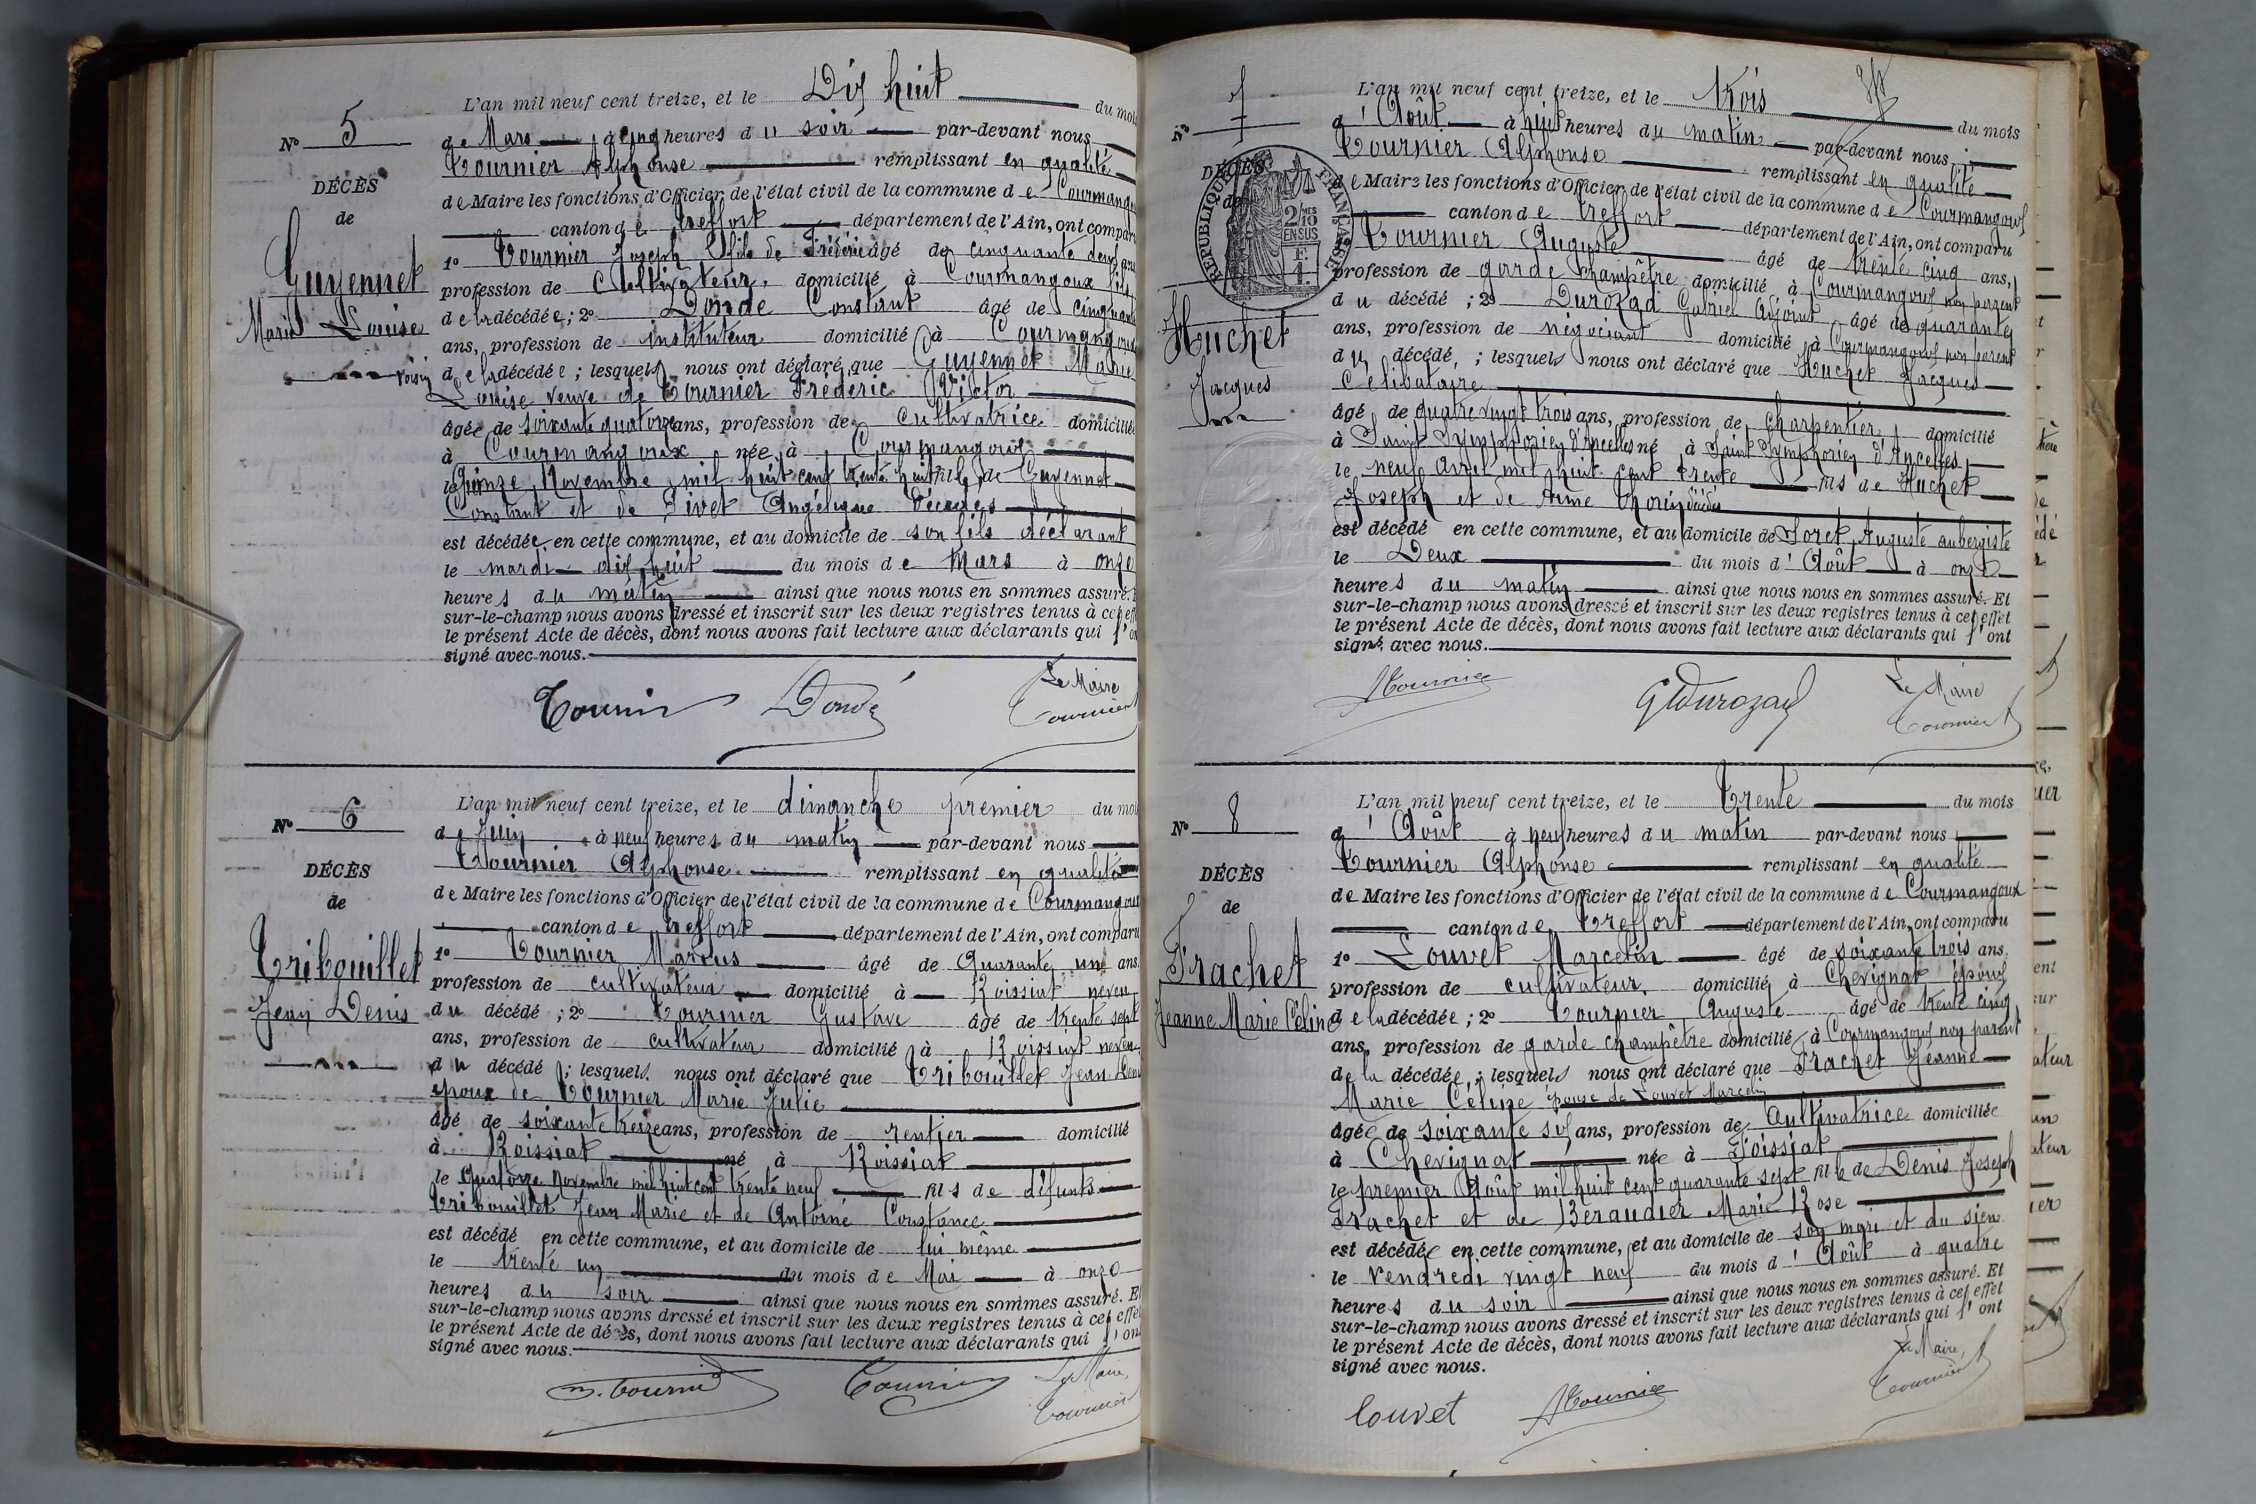 L'an mil neuf cent treize, et le Dix huit du mois
N° 5
de Mars à cinq heures du soir par-devant nous
Tournier Alphonse remplissant en qualité
DÉCÈS
de Maire les fonctions d'Officier de l'état civil de la commune de Courmangoux
de
canton de Treffort département de l'Ain, ont comparu
Guyennet
1° Tournier Joseph fils de Frédéric âgé de cinquante deux ans
profession de Cultivateur, domicilié à Courmangoux fils
Marie Louise
de la décédée; 2° Donde Constant âgé de cinquante
ans, profession de instituteur domicilié à Courmangoux
voisin de la décédée; lesquels nous ont déclaré que Guyennet Marie
Louise veuve de Tournier Frédéric Victor
âgée de soixante quatorze ans, profession de cultivatrice domiciliée
à Courmangoux née à Courmangoux
le Quinze Novembre mil huit cent trente huit fille de Guyennet
Constant et de Pivet Angélique Décédés
est décédée en cette commune, et au domicile de son fils déclarant
le mardi dix huit du mois de Mars à onze
heures du matin ainsi que nous nous en sommes assuré. Et
sur-le-champ nous avons dressé et inscrit sur les deux registres tenus à cet effet
le présent Acte de décès, dont nous avons fait lecture aux déclarants qui l'ont
signé avec nous.
Tournier Donde Le Maire
Tournier A
L'an mil neuf cent treize, et le dimanche premier du mois
N° 6
de Juin à neuf heures du matin par-devant nous
Tournier Alphonse remplissant en qualité
DÉCÈS
de Maire les fonctions d'Officier de l'état civil de la commune de Courmangoux
de
canton de Treffort département de l'Ain, ont comparu
Tribouillet
1° Tournier Marius âgé de Quarante un ans
profession de cultivateur domicilié à Roissiat neveu
Jean Denis
du décédé; 2° Tournier Gustave âgé de trente sept
ans, profession de cultivateur domicilié à Roissiat neveu
du décédé; lesquels nous ont déclaré que Tribouillet Jean Denis
époux de Tournier Marie Julie
âgé de soixante treize ans, profession de rentier domicilié
à Roissiat né à Roissiat
le Quatorze Novembre mil huit cent trente neuf fils de défunts
Tribouillet Jean Marie et de Antoine Constance
est décédé en cette commune, et au domicile de lui même
le trente un du mois de Mai à onze
heures du soir ainsi que nous nous en sommes assuré. Et
sur-le-champ nous avons dressé et inscrit sur les deux registres tenus à cet effet
le présent Acte de décès, dont nous avons fait lecture aux déclarants qui l'ont
signé avec nous.
M. Tournier Tournier Le Maire,
Tournier A
L'an mil neuf cent treize, et le trois du mois
N° 7
d'Août à huit heures du matin par-devant nous
Tournier Alphonse remplissant en qualité
DÉCÈS
de Maire les fonctions d'Officier de l'état civil de la commune de Courmangoux
de
RÉPUBLIQUE FRANÇAISE
2/10 EN SUS
1 F.
canton de Treffort département de l'Ain, ont comparu
1° Tournier Auguste âgé de trente cinq ans,
profession de garde champêtre domicilié à Courmangoux non parent
Huchet
du décédé; 2° Durozad Gabriel Adjoint âgé de quarante
ans, profession de négociant domicilié à Courmangoux non parent
Jacques
du décédé; lesquels nous ont déclaré que Huchet Jacques
Célibataire
âgé de quatre vingt trois ans, profession de charpentier domicilié
à Saint Symphorien d'Ancelles né à Saint Symphorien d'Ancelles
le neuf avril mil huit cent trente fils de Huchet
Joseph et de Anne Thorin décédés
est décédé en cette commune, et au domicile de Foret Auguste aubergiste
le Deux du mois d'Août à onze
heures du matin ainsi que nous nous en sommes assuré. Et
sur-le-champ nous avons dressé et inscrit sur les deux registres tenus à cet effet
le présent Acte de décès, dont nous avons fait lecture aux déclarants qui l'ont
signé avec nous.
ATournier GDurozad Le Maire
Tournier A
L'an mil neuf cent treize, et le Trente du mois
N° 8
d'Août à neuf heures du matin par-devant nous
Tournier Alphonse remplissant en qualité
DÉCÈS
de Maire les fonctions d'Officier de l'état civil de la commune de Courmangoux
de
canton de Treffort département de l'Ain, ont comparu
Frachet
1° Louvet Marcelin âgé de soixante trois ans,
profession de cultivateur, domicilié à Chevignat époux
Jeanne Marie Céline
de la décédée; 2° Tournier Auguste âgé de trente cinq
ans, profession de garde champêtre domicilié à Courmangoux non parent
de la décédée; lesquels nous ont déclaré que Frachet Jeanne
Marie Céline épouse de Louvet Marcelin
âgée de soixante six ans, profession de Cultivatrice domiciliée
à Chevignat née à Poissiat
le premier Août mil huit cent quarante sept fille de Denis Joseph
Frachet et de Beraudier Marie Rose
est décédée en cette commune, et au domicile de son mari et du sien
le Vendredi vingt neuf du mois d'Août à quatre
heures du soir ainsi que nous nous en sommes assuré. Et
sur-le-champ nous avons dressé et inscrit sur les deux registres tenus à cet effet
le présent Acte de décès, dont nous avons fait lecture aux déclarants qui l'ont
signé avec nous.
Louvet ATournier Le Maire,
Tournier A